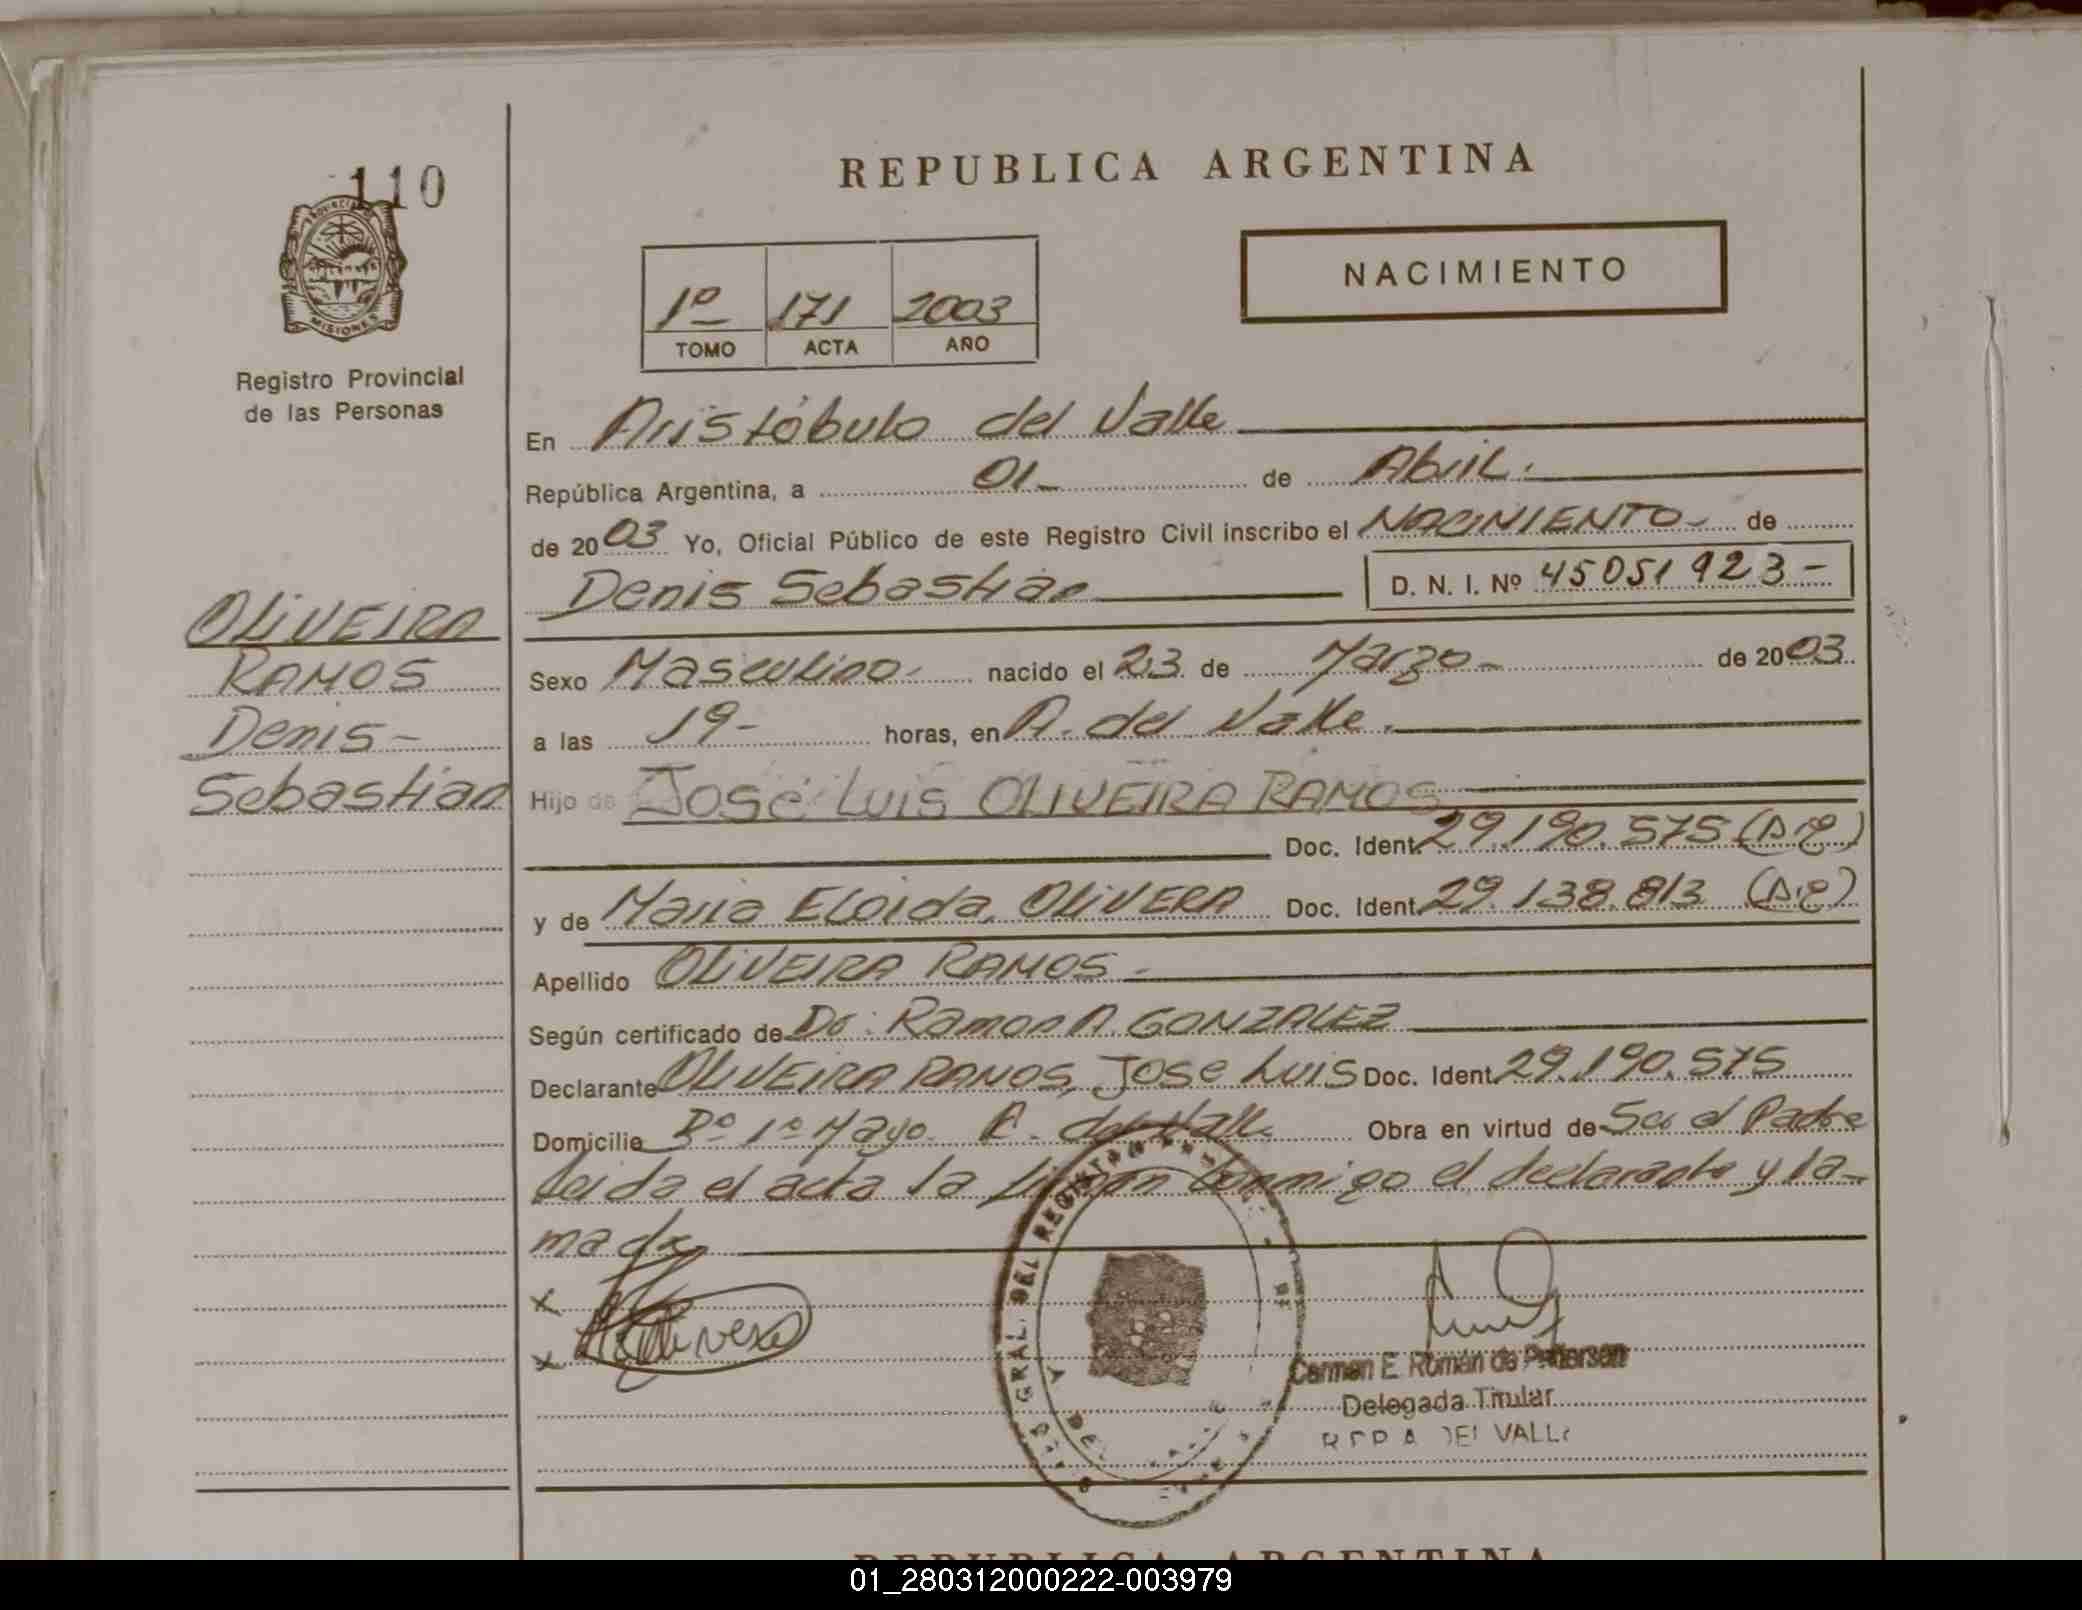 110
PROVINCIA DE
MISIONES
Registro Provincial
de las Personas
OLIVEIRA
RAMOS
Denis -
Sebastian
REPUBLICA ARGENTINA
NACIMIENTO
1º 171 2003
TOMO ACTA AÑO
En Aristóbulo del Valle
República Argentina, a 01- de Abril.
de 2003 Yo, Oficial Público de este Registro Civil inscribo el NACIMIENTO- de
Denis Sebastián D. N. I. Nº 45051923-
Sexo Masculino- nacido el 23 de Marzo- de 2003
a las 19- horas, en A. del Valle.
Hijo de José Luis OLIVEIRA RAMOS
Doc. Ident. 29.190.575 (Arg)
y de Maria Eloida OLIVERA Doc. Ident. 29.138.813 (Arg)
Apellido OLIVEIRA RAMOS-
Según certificado de Dr. Ramon A. GONZALEZ
Declarante OLIVEIRA RAMOS, Jose Luis Doc. Ident. 29.190.575
Domicilio Bº 1º Mayo. A. del Valle Obra en virtud de Ser el Padre
leida el acta la firman conmigo el declarante y la-
madre
x
x Olivera
GRAL. DEL REGISTRO
Carmen E. Román de
Delegada Titular
DEL VALLE
REPUBLICA ARGENTINA
01_280312000222-003979